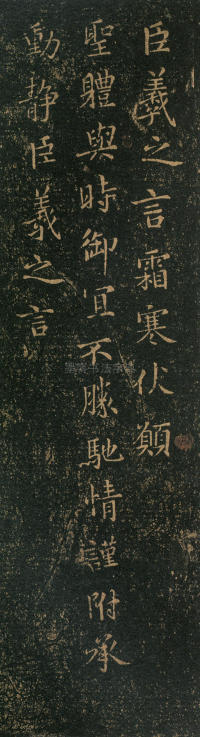 臣羲之言霜寒伏願
聖體與時御宜不勝馳情謹附承
動静臣羲之言